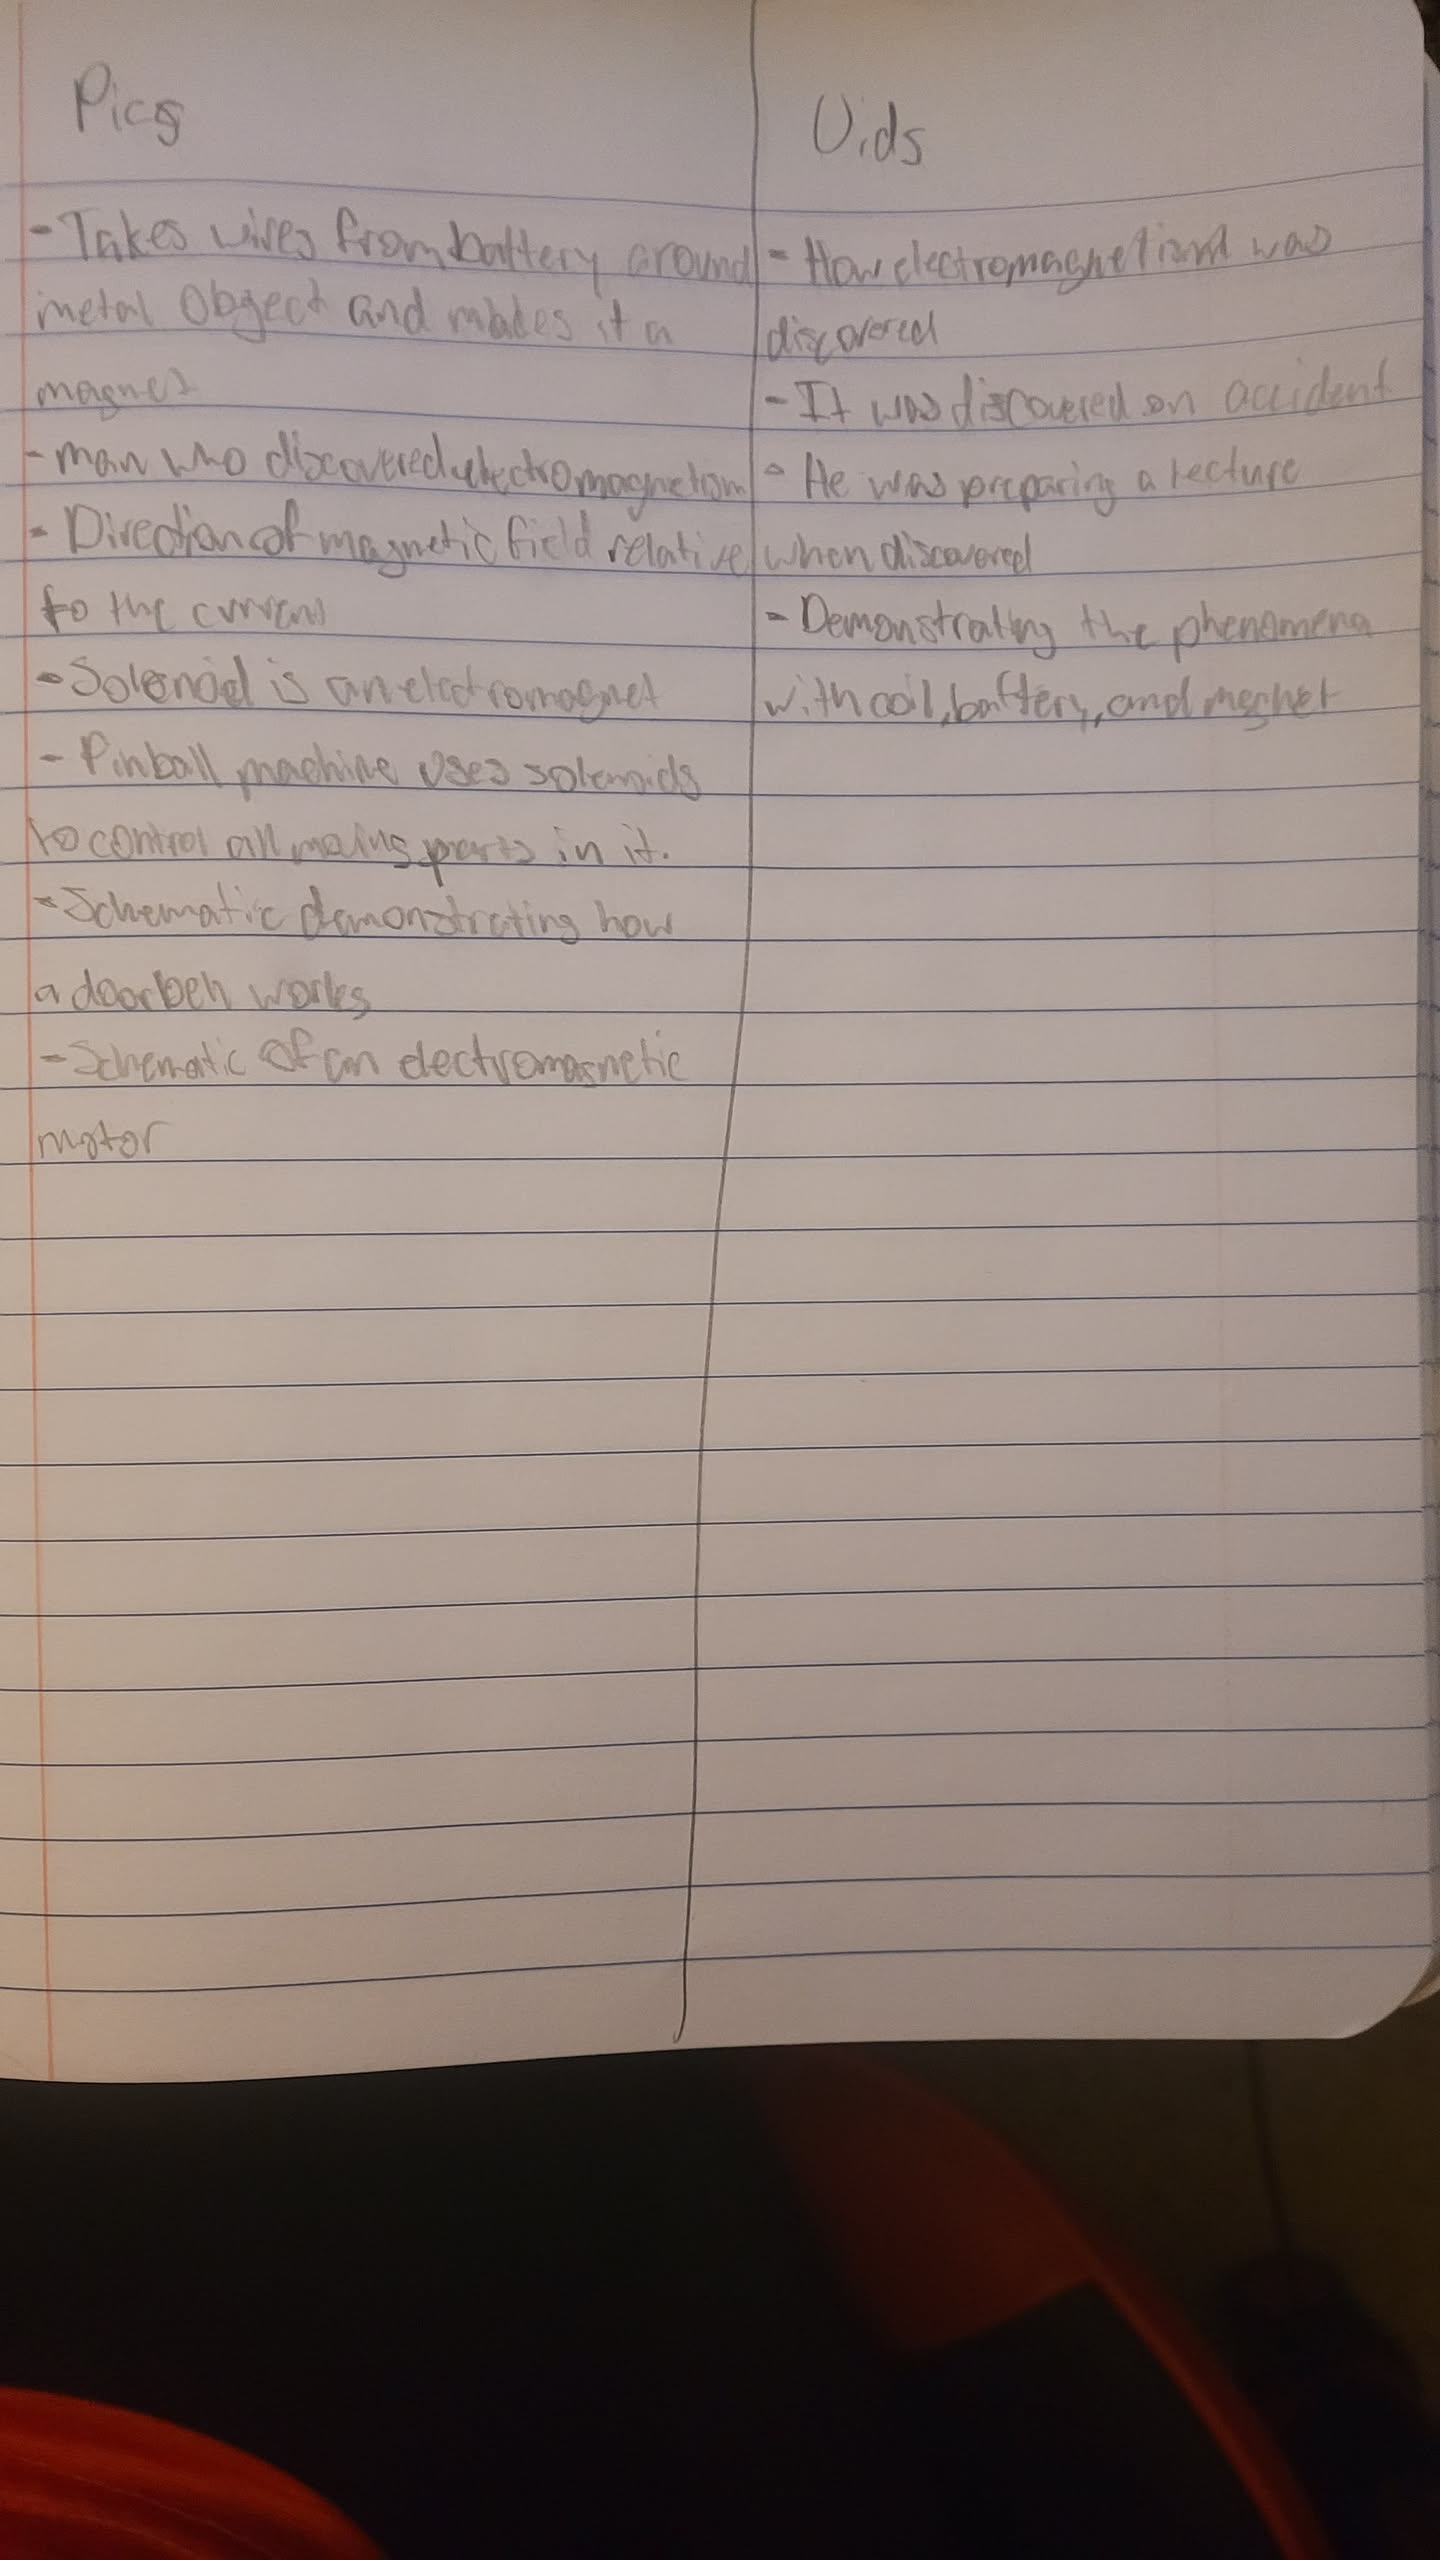 Pics
- Takes wires from battery around
metal Object and makes it a
magnet
- man who discovered electromagnetism
- Direction of magnetic field relative
to the current
- Solenoid is an electromagnet
- Pinball machine uses solenoids
to control all mains parts in it.
- Schematic demonstrating how
a doorbell works
- Schematic of an electromagnetic
motor
Vids
- How electromagnetism was
discovered
- It was discovered on accident
- He was preparing a lecture
when discovered
- Demonstrating the phenomena
with coil, battery, and magnet